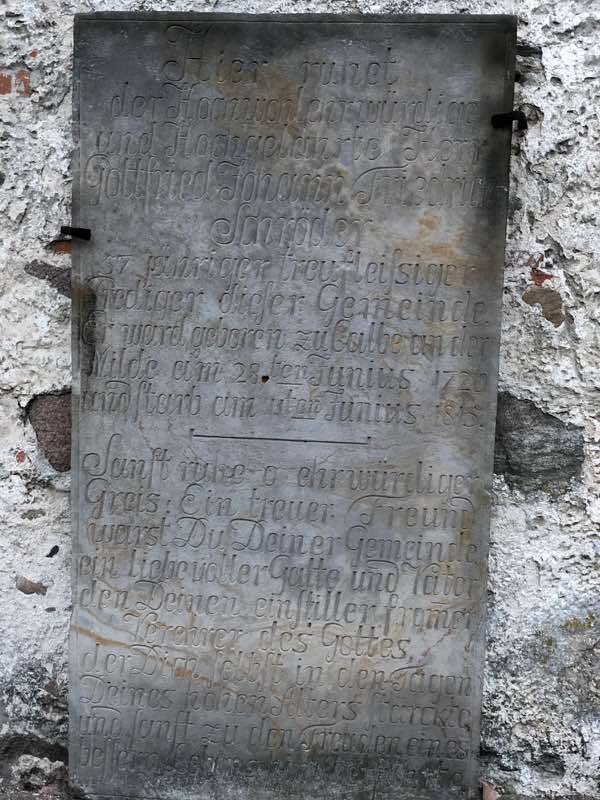 Hier ruhet
der Hochwohlehrwürdige
und Hochgelahrte Herr
Gottfried Johann Friedrich
Schröder
37 jähriger treufleiſsiger
Prediger dieſer Gemeinde
Er ward geboren zu Calbe an der
Milde am 28 ten Junius
und ſtarb am ten Junius 1815.
Sanft ruhe o ehrwürdiger
Greis: Ein treuer Freund
warst Du Deiner Gemeinde
ein liebevoller Gatte und Vater
den Deinen ein ſtiller from̄er
Verehrer des Gottes
der Dich ſelbſt in den Tagen
Deines hohen Alters ſtarckte
und ſanft zu den Freuden eines
beſſern